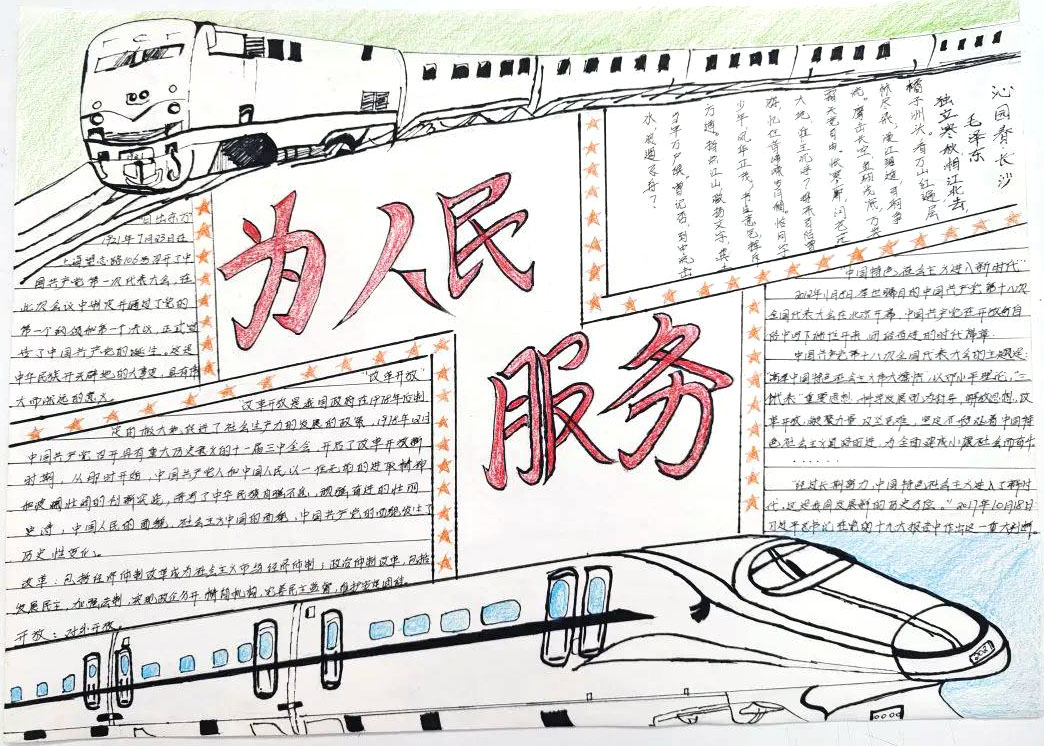 为人民
服务
日出东方
1921年7月23日在
上海望志路106号召开了中
国共产党第一次代表大会，在
此次会议中制定并通过了党的
第一个纲领和第一个决议，正式宣
告了中国共产党的诞生。这是
中华民族开天辟地的大事变，具有伟
大而深远的意义。
"改革开放"
改革开放是我国政府在1978年
定的极大地促进了社会生产力的发展的政策，1978年12月
中国共产党召开具有重大历史意义的十一届三中全会，开启了改革开放新
时期，从那时开始，中国共产党人和中国人民以一往无前的进取精神
和波澜壮阔的创新实践，谱写了中华民族自强不息，顽强奋进的壮丽
史诗，中国人民的面貌，社会主义中国的面貌，中国共产党的面貌发生了
历史性变化。
改革：包括经济体制改革成为社会主义市场经济体制；政治体制改革，包括
发展民主，加强法制，实现政企分开 精简机构，完善民主监督，维护安定团结。
开放：对外开放。
沁园春长沙
毛泽东
独立寒秋湘江北去，
橘子洲头。看万山红遍层
林尽染。漫江碧透，百舸争
流。鹰击长空鱼翔浅底，万类
霜天竞自由。怅寥廓，问苍茫
大地，谁主沉浮？携来百侣曾
游，忆往昔峥嵘岁月稠。恰同学
少年，风华正茂，书生意气挥斥
方遒。指点江山激扬文字，粪土
当年万户侯。曾记否，到中流击
水，浪遏飞舟？
"中国特色社会主义进入新时代"
2012年11月8日举世瞩目的中国共产党第十八次
全国代表大会在北京开幕，中国共产党在开放的自
信中写下继往开来，团结奋进的时代篇章
中国共产党第十八次全国代表大会的主题是：
高举中国特色社会主义伟大旗帜，以邓小平理论，"三
个代表"重要思想，科学发展观为指导，解放思想，改
革开放，凝聚力量 攻坚克难，坚定不移沿着中国特
色社会主义道路前进，为全面建成小康社会而奋斗
......
经过长期努力，中国特色社会主义进入了新时
代，这是我国发展新的历史方位。"2017年10月18日
习近平总书记在党的十九大报告中作出这一重大判断。